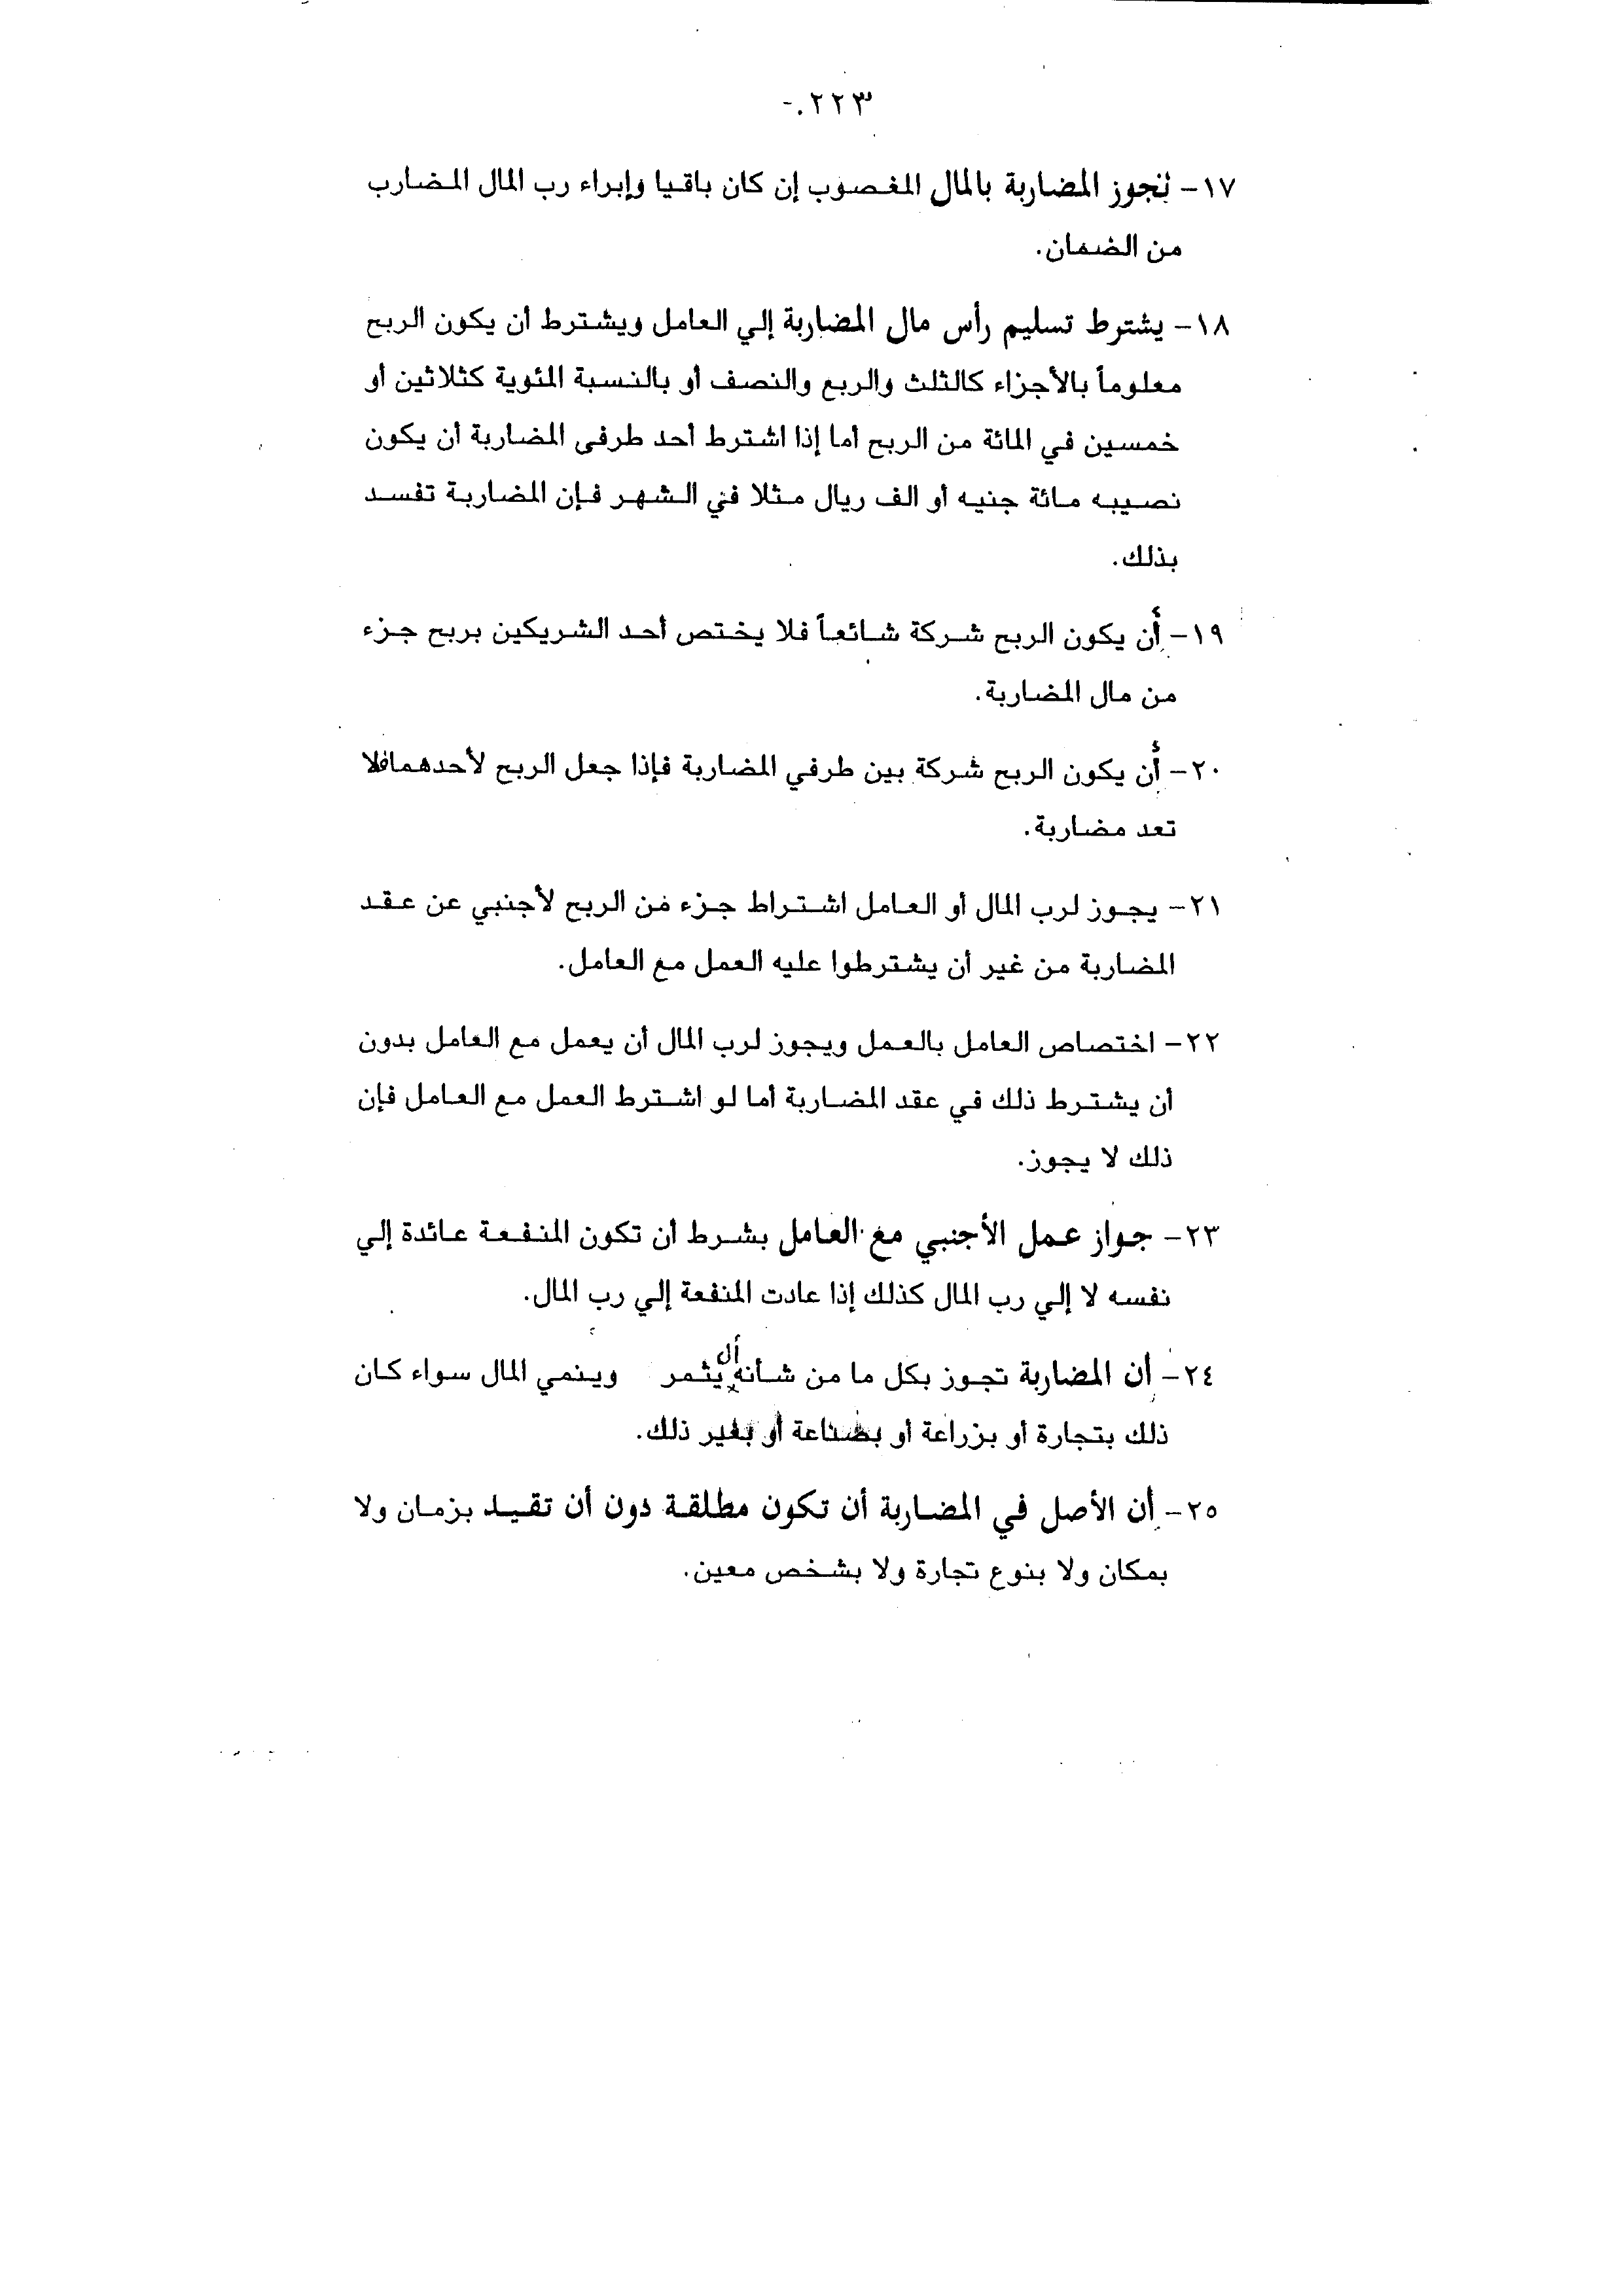 ٢٢٣.-
١٧- تجوز المضاربة بالمال المغصوب إن كان باقيا وإبراء رب المال المضارب
من الضمان.
١٨- يشترط تسليم رأس مال المضاربة إلي العامل ويشترط أن يكون الربح
معلوماً بالأجزاء كالثلث والربع والنصف أو بالنسبة المئوية كثلاثين أو
خمسين في المائة من الربح أما إذا اشترط أحد طرفى المضاربة أن يكون
نصيبه مائة جنيه أو الف ريال مثلا في الشهر فإن المضاربة تفسد
بذلك.
١٩- أن يكون الربح شركة شائعاً فلا يختص أحد الشريكين بربح جزء
من مال المضاربة.
٢٠- أن يكون الربح شركة بين طرفي المضاربة فإذا جعل الربح لأحدهما فلا
تعد مضاربة.
٢١- يجوز لرب المال أو العامل اشتراط جزء من الربح لأجنبي عن عقد
المضاربة من غير أن يشترطوا عليه العمل مع العامل.
٢٢- اختصاص العامل بالعمل ويجوز لرب المال أن يعمل مع العامل بدون
أن يشترط ذلك في عقد المضاربة أما لو اشترط العمل مع العامل فإن
ذلك لا يجوز.
٢٣- جواز عمل الأجنبي مع العامل بشرط أن تكون المنفعة عائدة إلي
نفسه لا إلي رب المال كذلك إذا عادت المنفعة إلي رب المال.
٢٤- أن المضاربة تجوز بكل ما من شأنه أن يثمر وينمي المال سواء كان
ذلك بتجارة أو بزراعة أو بصناعة أو بغير ذلك.
٢٥- أن الأصل في المضاربة أن تكون مطلقة دون أن تقيد بزمان ولا
بمكان ولا بنوع تجارة ولا بشخص معين.